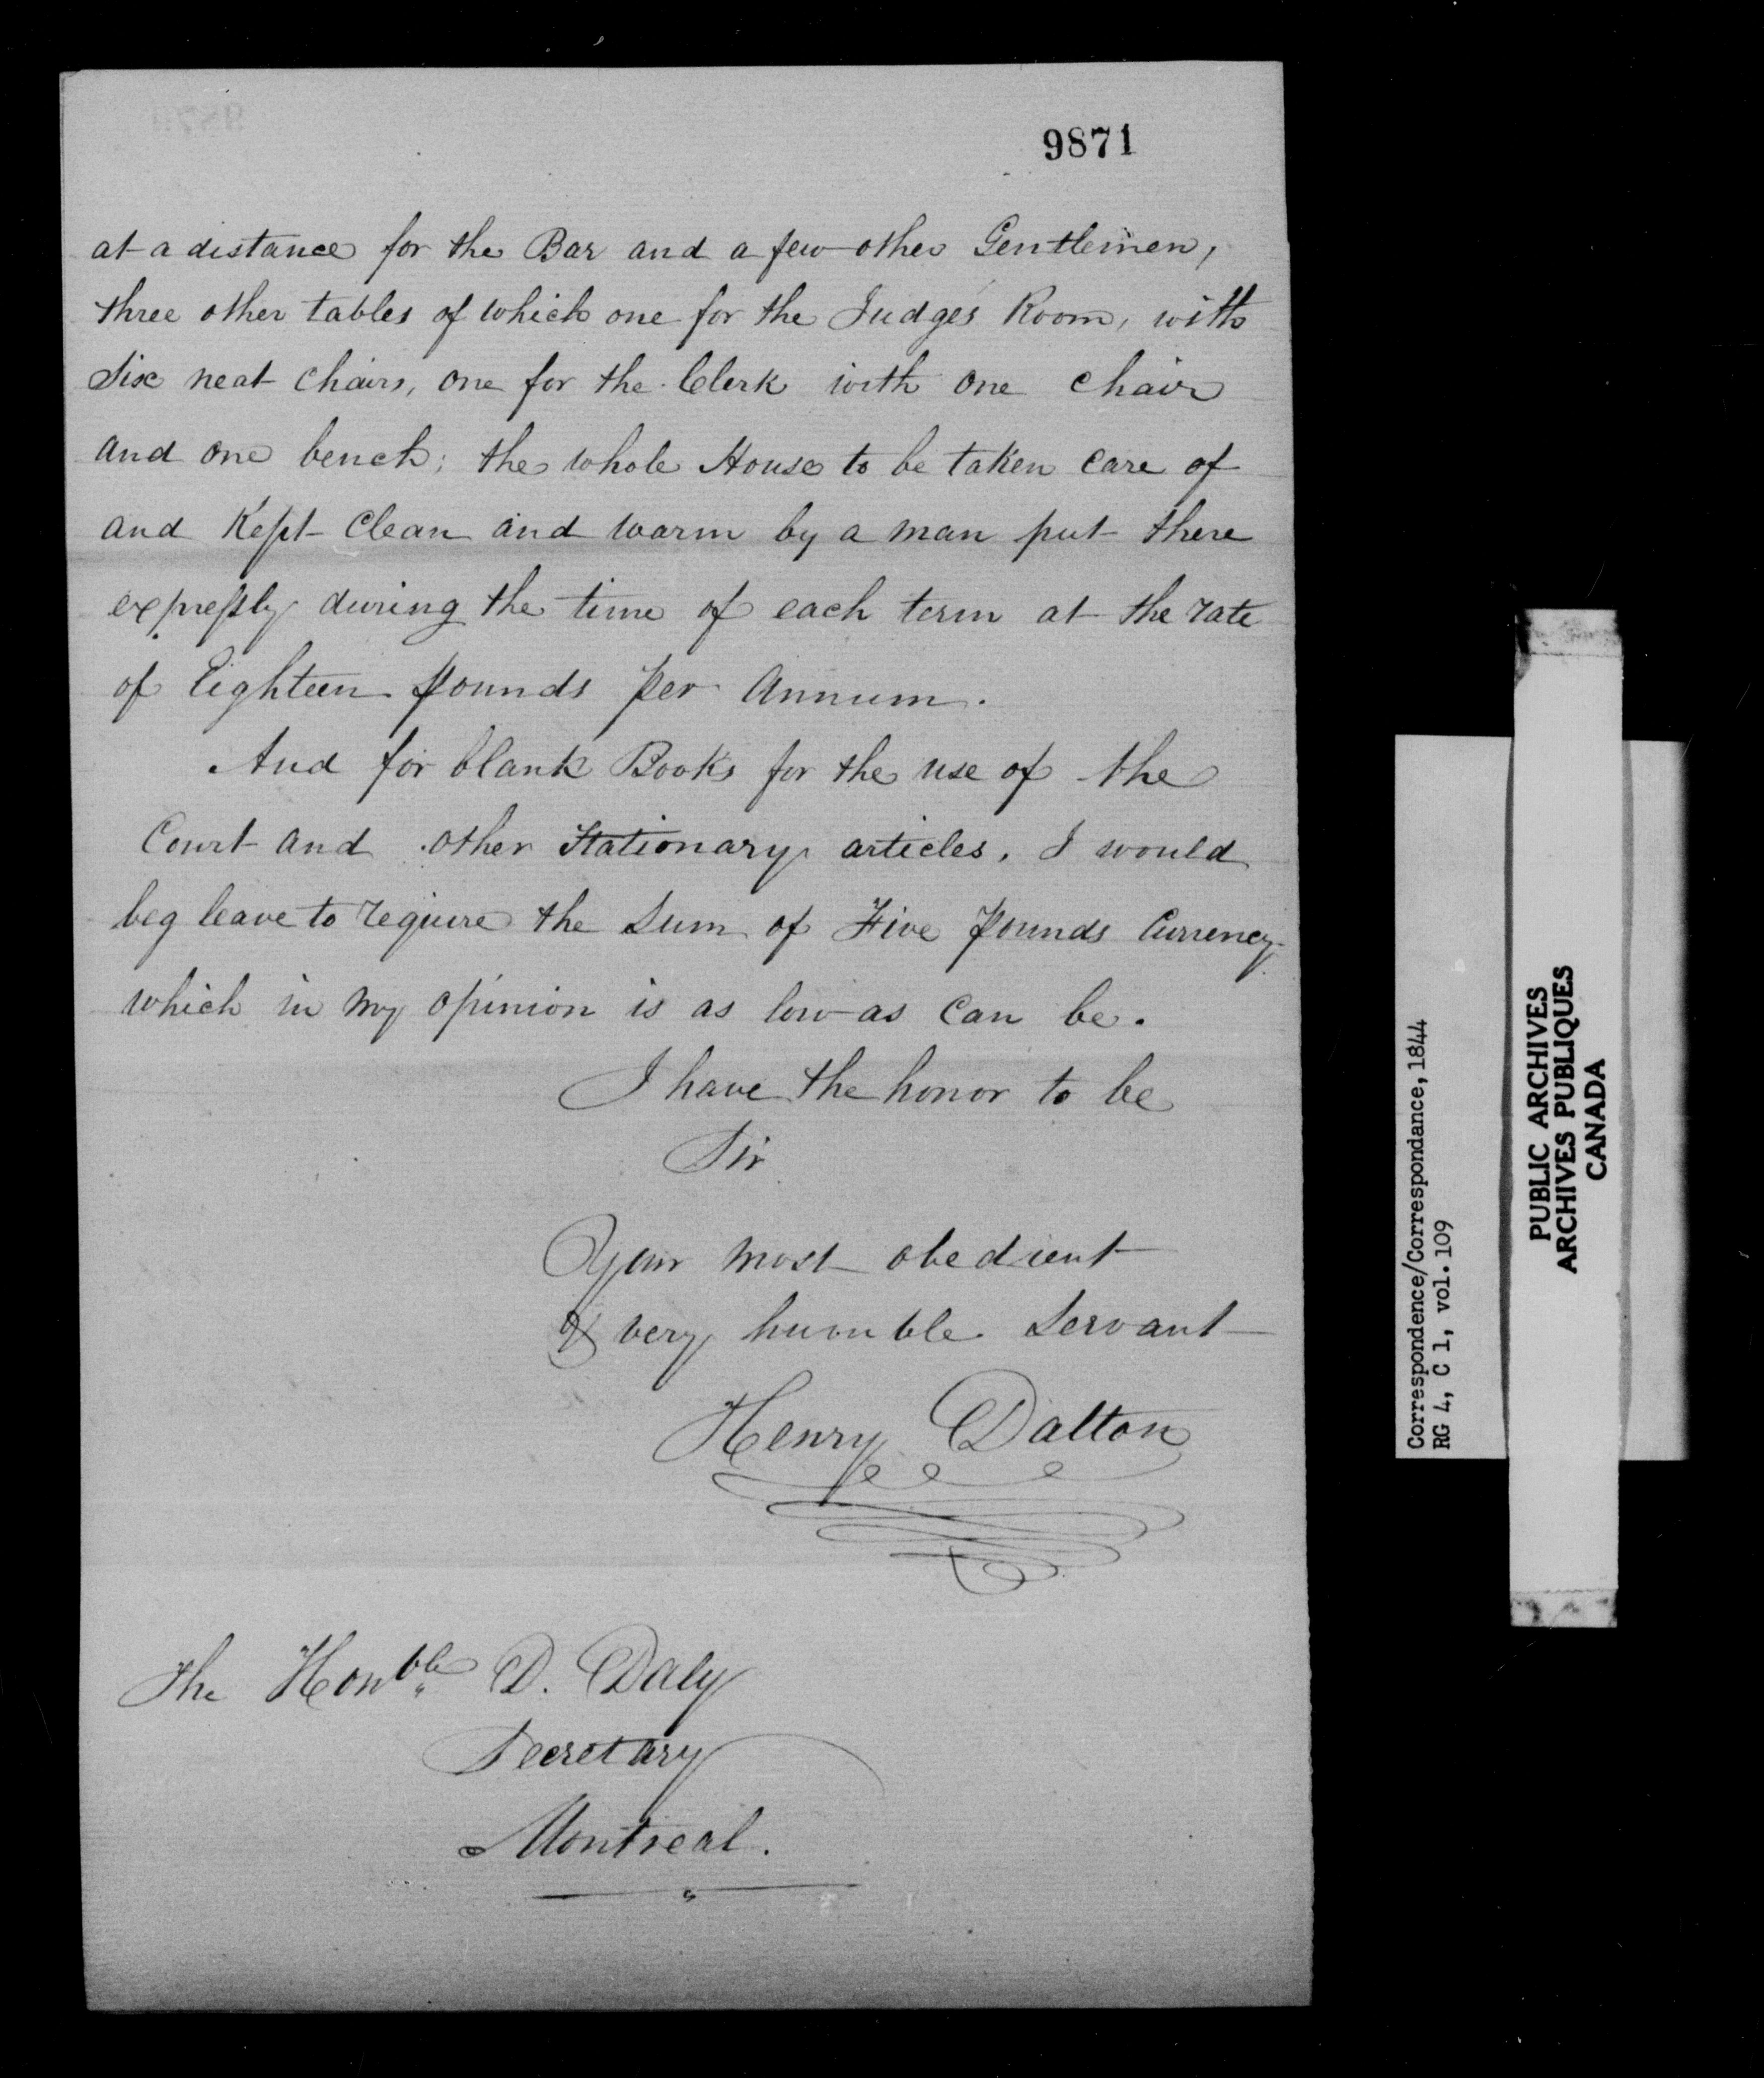 9871
at a distance for the Bar and a few other Gentlemen,
three other tables of which one for the Judges' Room, with
six neat chairs, one for the Clerk with one chair
and one bench; the whole House to be taken care of
and Kept clean and warm by a man put there
expressly during the time of each term at the rate
of Eighteen pounds per annum.
And for blank Books for the use of the
Court and other Stationary articles, I would
beg leave to require the Sum of Five pounds Currency
which in my opinion is as low as can be.
I have the honor to be
Sir
Your most obedient
& very humble Servant
Henry Dalton
The Honble D. Daly
Secretary
Montreal.
Correspondence/Correspondance, 1844
RG 4, C 1, vol. 109
PUBLIC ARCHIVES
ARCHIVES PUBLIQUES
CANADA